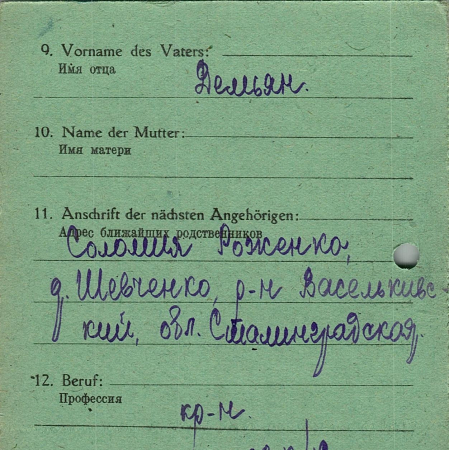 9. Vorname des Vaters:
Имя отца
Демьян.
10. Name der Mutter:
Имя матери
11. Anschrift der nächsten Angehörigen:
Адрес ближайших родственников
Соломия Роженко,
д. Шевченко, р-н Васелькивс-
кий, обл. Сталинградская.
12. Beruf:
Профессия
кр-н.